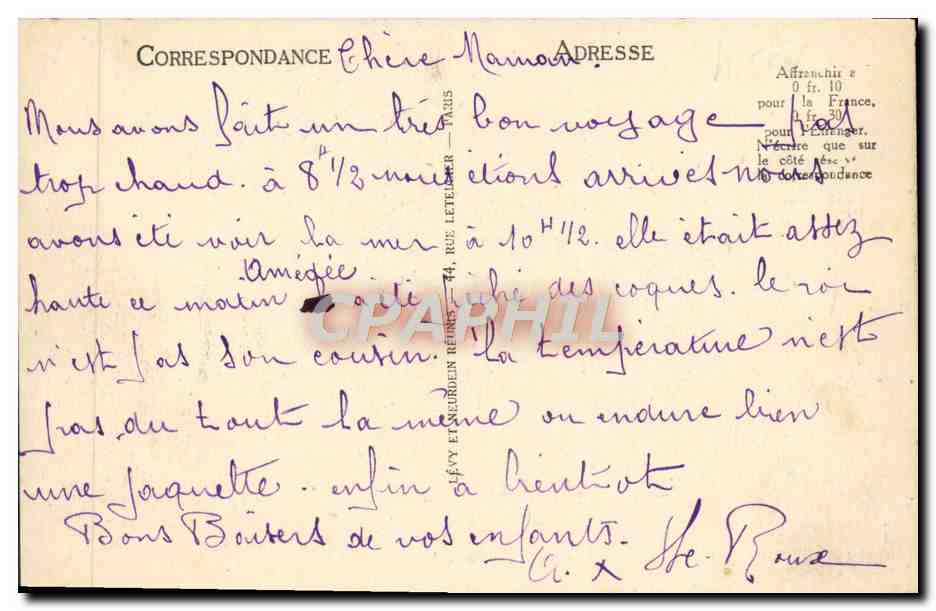 CORRESPONDANCE Chère Maman. ADRESSE
Affranchir a
0 fr. 10
pour la France,
0 fr. 30
pour l'Étranger.
N'écrire que sur
le côté
la correspondance
Nous avons fait un très bon voyage pas
trop chaud. à 8H1/2 nous étions arrivés nous
avons été voir la mer à 10H1/2. elle était assez
Amédée
haute ce matin a été pêché des coques. le roi
n'est pas son cousin. la température n'est
pas du tout la même on endure bien
une jaquette. enfin à bientôt
Bons Baisers de vos enfants.
A. x Roux
LÉVY ET NEURDEIN RÉUNIS — 44, RUE LETELLIER — PARIS
CPAPHIL